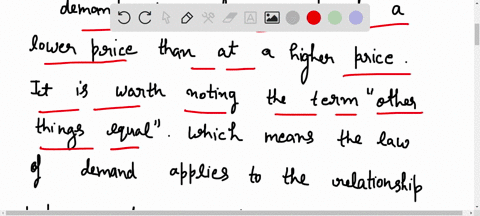 demand a
lower price than at a higher price.
It is worth noting the term "other
things equal". which means the law
of demand applies to the relationship